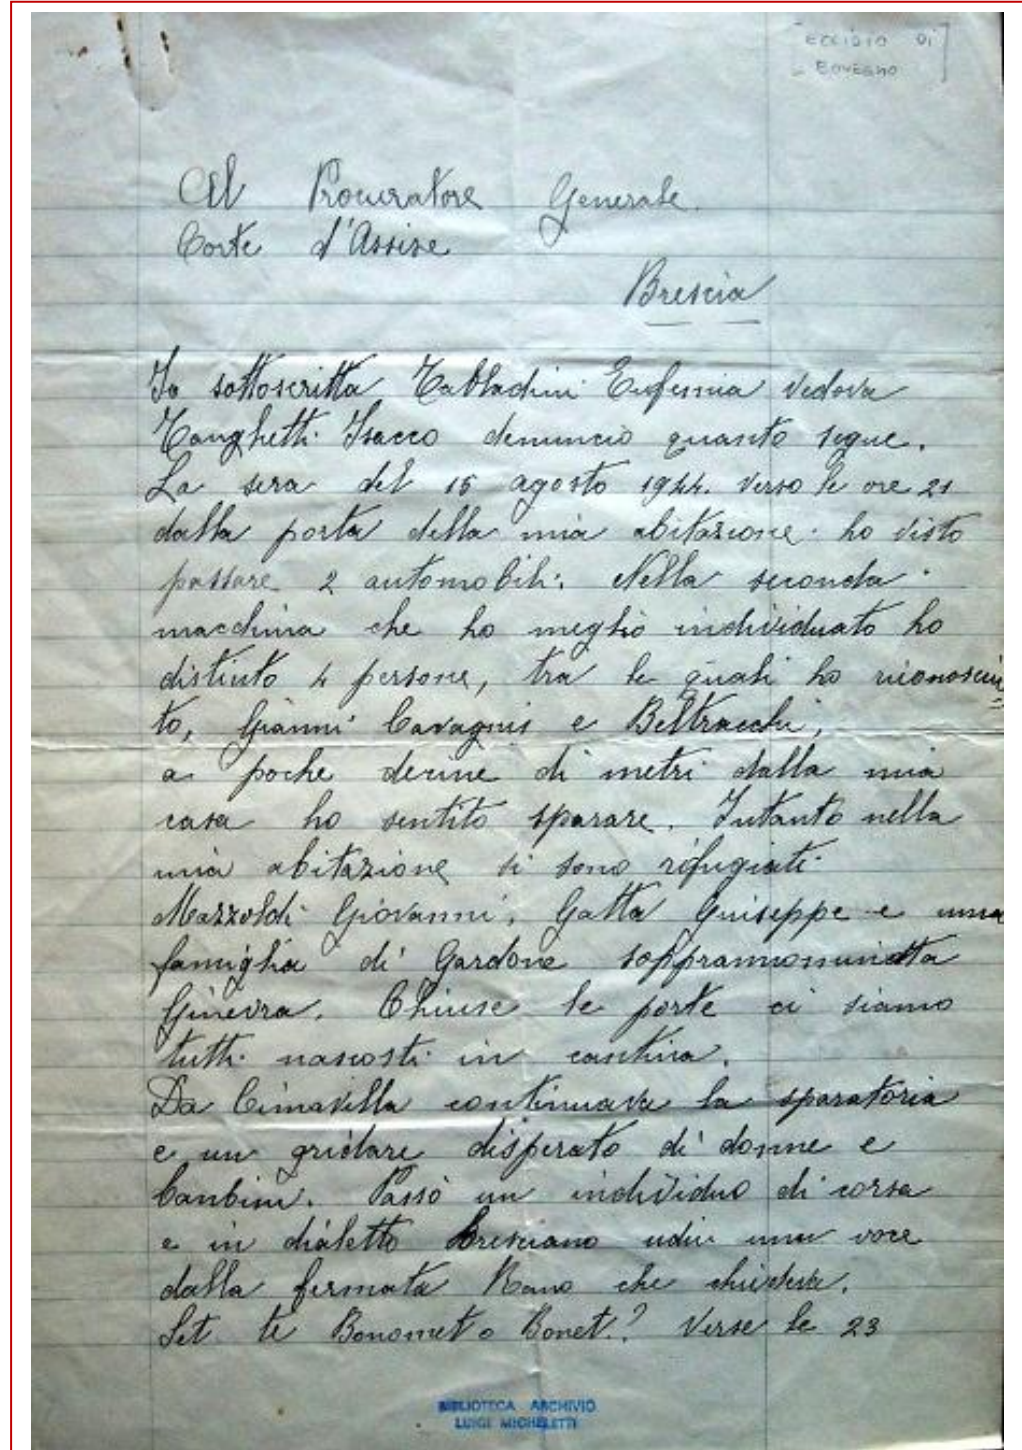 [ECCIDIO DI
BOVEGNO]
Al Procuratore Generale.
Corte d'Assise
Brescia
Io sottoscritta Tabladini Eufemia vedova
Tanghetti Isacco denuncio quanto segue.
La sera del 15 agosto 1944. verso le ore 21
dalla porta della mia abitazione ho visto
passare 2 automobili. Nella seconda
macchina che ho meglio individuato ho
distinto 4 persone, tra le quali ho riconosciu
to, Gianni Cavagnis e Beltracchi,
a poche decine di metri dalla mia
casa ho sentito sparare. Intanto nella
mia abitazione si sono rifugiati
Mazzoldi Giovanni, Gatta Guiseppe e una
famiglia di Gardone soprannominata
Ginevra. Chiuse le porte ci siamo
tutti nascosti in cantina.
Da Cimavilla continuava la sparatoria
e un gridare disperato di donne e
bambini. Passò un individuo di corsa
e in dialetto Bresciano udii una voce
dalla fermata che chiedeva.
Set te Bonomet o Bonet? Verse le 23
BIBLIOTECA ARCHIVIO
LUIGI MICHELETTI